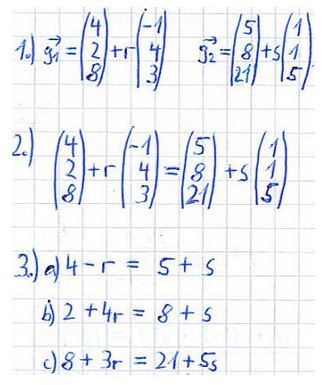 1.) g₁⃗ = (4 2 8) + r (-1 4 3) g₂⃗ = (5 8 21) + s (1 1 5)
2.) (4 2 8) + r (-1 4 3) = (5 8 21) + s (1 1 5)
3.) a) 4 - r = 5 + s
b) 2 + 4r = 8 + s
c) 8 + 3r = 21 + 5s